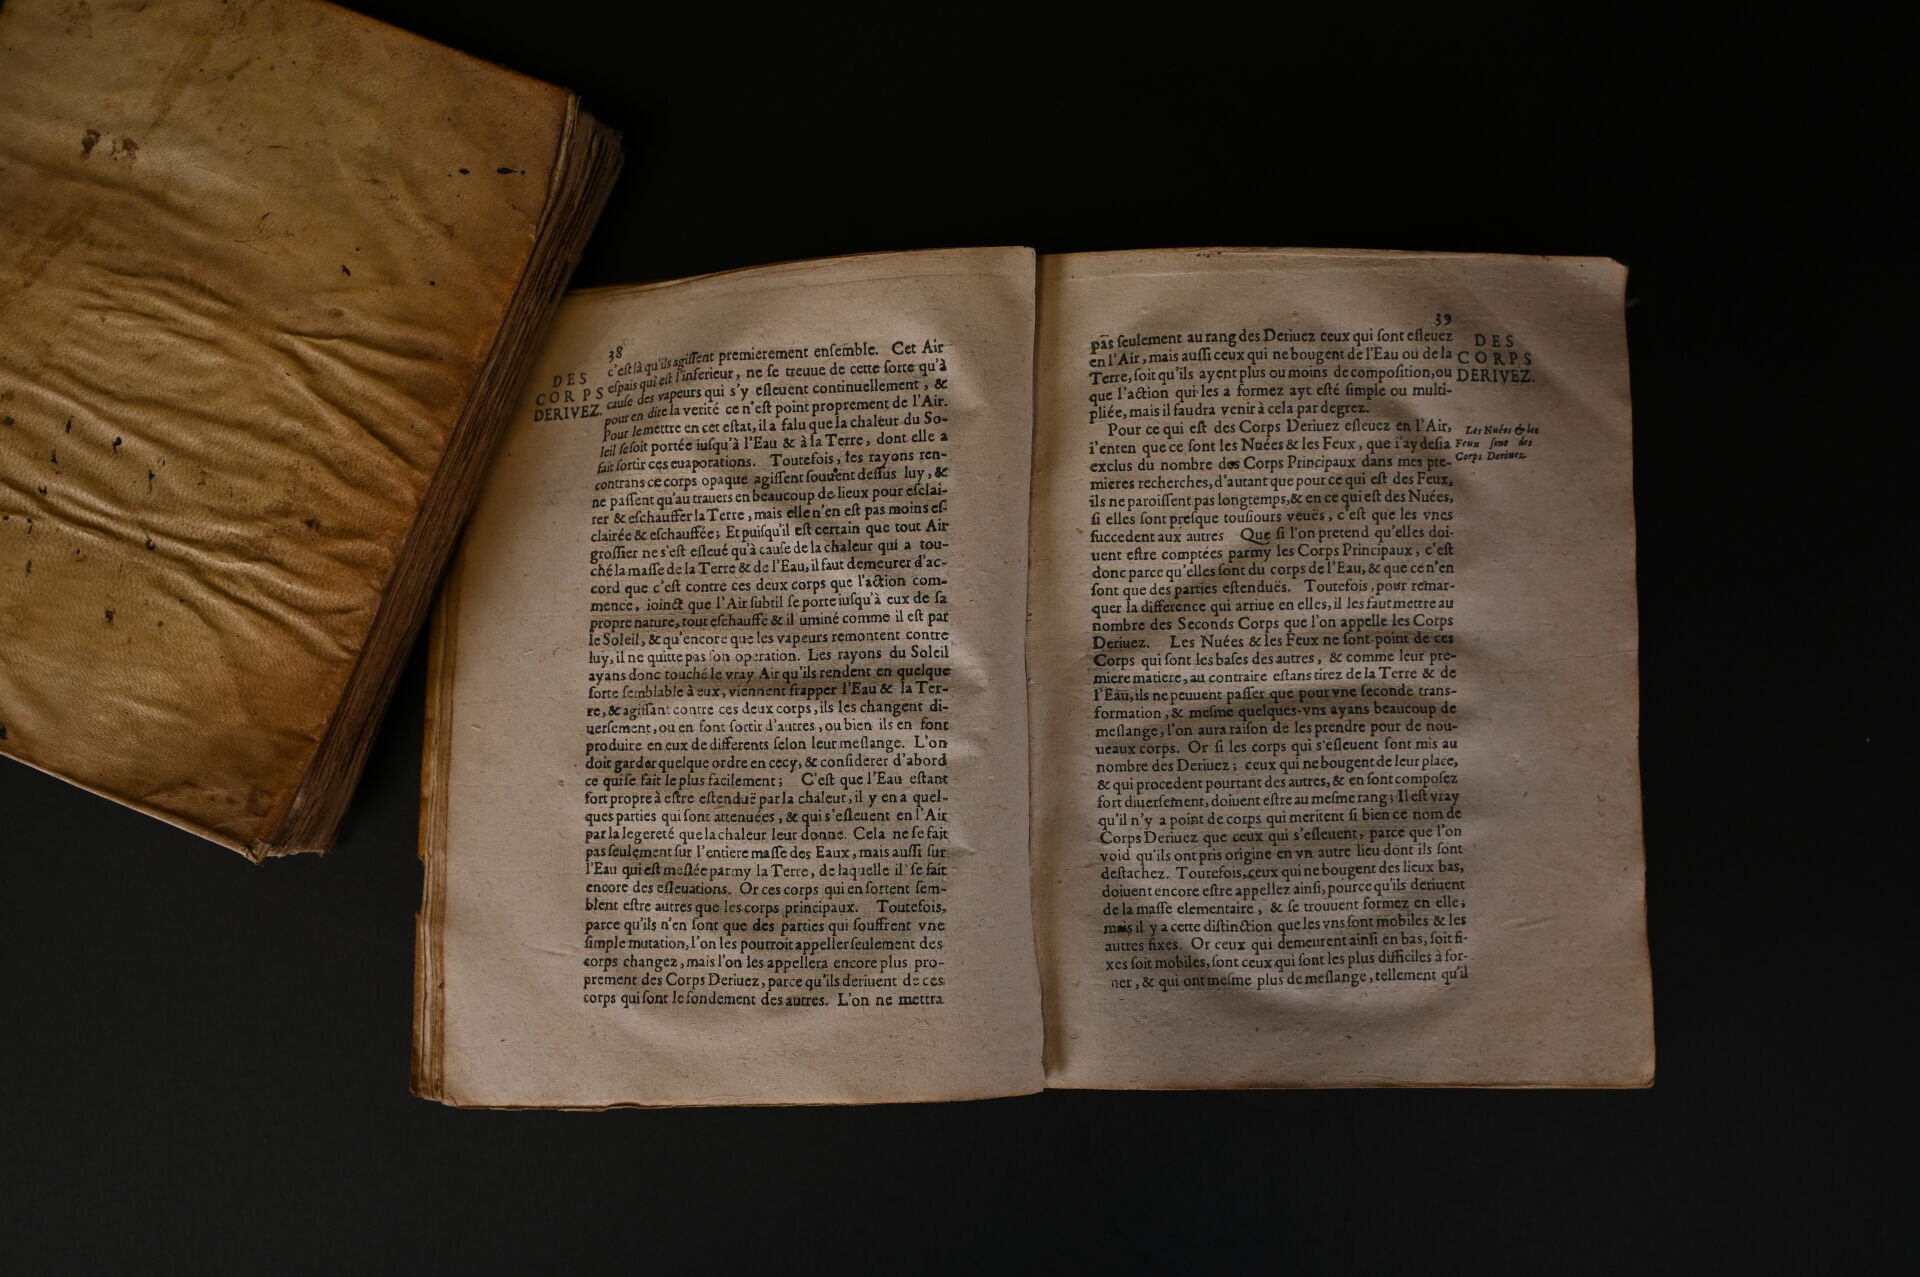 38
DES
CORPS
DERIVEZ.
c'eſt là qu'ils agiſſent premierement enſemble. Cet Air
eſpais qui eſt l'inferieur, ne ſe treuue de cette ſorte qu'à
cauſe des vapeurs qui s'y eſleuent continuellement, &
pour en dire la verité ce n'eſt point proprement de l'Air.
Pour le mettre en cet eſtat, il a falu que la chaleur du So-
leil ſe ſoit portée iuſqu'à l'Eau & à la Terre, dont elle a
fait ſortir ces euaporations. Toutefois, les rayons ren-
contrans ce corps opaque agiſſent ſouuent deſſus luy, &
ne paſſent qu'au trauers en beaucoup de lieux pour eſclai-
rer & eſchauffer la Terre, mais elle n'en eſt pas moins eſ-
clairée & eſchauffée; Et puiſqu'il eſt certain que tout Air
groſſier ne s'eſt eſleué qu'à cauſe de la chaleur qui a tou-
ché la maſſe de la Terre & de l'Eau, il faut demeurer d'ac-
cord que c'eſt contre ces deux corps que l'action com-
mence, ioinct que l'Air ſubtil ſe porte iuſqu'à eux de ſa
propre nature, tout eſchauffé & il uminé comme il eſt par
le Soleil, & qu'encore que les vapeurs remontent contre
luy, il ne quitte pas ſon operation. Les rayons du Soleil
ayans donc touché le vray Air qu'ils rendent en quelque
ſorte ſemblable à eux, viennent frapper l'Eau & la Ter-
re, & agiſſant contre ces deux corps, ils les changent di-
uerſement, ou en font ſortir d'autres, ou bien ils en font
produire en eux de differents ſelon leur meſlange. L'on
doit garder quelque ordre en cecy, & conſiderer d'abord
ce qui ſe fait le plus facilement; C'eſt que l'Eau eſtant
fort propre à eſtre eſtenduë par la chaleur, il y en a quel-
ques parties qui ſont attenuées, & qui s'eſleuent en l'Air
par la legereté que la chaleur leur donne. Cela ne ſe fait
pas ſeulement ſur l'entiere maſſe des Eaux, mais auſſi ſur
l'Eau qui eſt meſlée parmy la Terre, de laquelle il ſe fait
encore des eſleuations. Or ces corps qui en ſortent ſem-
blent eſtre autres que les corps principaux. Toutefois,
parce qu'ils n'en ſont que des parties qui ſouffrent vne
ſimple mutation, l'on les pourroit appeller ſeulement des
corps changez, mais l'on les appellera encore plus pro-
prement des Corps Deriuez, parce qu'ils deriuent de ces
corps qui ſont le fondement des autres. L'on ne mettra
39
DES
CORPS
DERIVEZ.
pas ſeulement au rang des Deriuez ceux qui ſont eſleuez
en l'Air, mais auſſi ceux qui ne bougent de l'Eau ou de la
Terre, ſoit qu'ils ayent plus ou moins de compoſition, ou
que l'action qui les a formez ayt eſté ſimple ou multi-
pliée, mais il faudra venir à cela par degrez.
Pour ce qui eſt des Corps Deriuez eſleuez en l'Air,
i'enten que ce ſont les Nuées & les Feux, que i'ay deſia
exclus du nombre des Corps Principaux dans mes pre-
mieres recherches, d'autant que pour ce qui eſt des Feux,
ils ne paroiſſent pas longtemps, & en ce qui eſt des Nuées,
ſi elles ſont preſque touſiours veuës, c'eſt que les vnes
ſuccedent aux autres Que ſi l'on pretend qu'elles doi-
uent eſtre comptées parmy les Corps Principaux, c'eſt
donc parce qu'elles ſont du corps de l'Eau, & que ce n'en
ſont que des parties eſtenduës. Toutefois, pour remar-
quer la difference qui arriue en elles, il les faut mettre au
nombre des Seconds Corps que l'on appelle les Corps
Deriuez. Les Nuées & les Feux ne ſont point de ces
Corps qui ſont les baſes des autres, & comme leur pre-
miere matiere, au contraire eſtans tirez de la Terre & de
l'Eau, ils ne peuuent paſſer que pour vne ſeconde trans-
formation, & meſme quelques-vns ayans beaucoup de
meſlange, l'on aura raiſon de les prendre pour de nou-
ueaux corps. Or ſi les corps qui s'eſleuent ſont mis au
nombre des Deriuez; ceux qui ne bougent de leur place,
& qui procedent pourtant des autres, & en ſont compoſez
fort diuerſement, doiuent eſtre au meſme rang; Il eſt vray
qu'il n'y a point de corps qui meritent ſi bien ce nom de
Corps Deriuez que ceux qui s'eſleuent, parce que l'on
void qu'ils ont pris origine en vn autre lieu dont ils ſont
deſtachez. Toutefois, ceux qui ne bougent des lieux bas,
doiuent encore eſtre appellez ainſi, pource qu'ils deriuent
de la maſſe elementaire, & ſe trouuent formez en elle;
mais il y a cette diſtinction que les vns ſont mobiles & les
autres fixes. Or ceux qui demeurent ainſi en bas, ſoit fi-
xes ſoit mobiles, ſont ceux qui ſont les plus difficiles à for-
ner, & qui ont meſme plus de meſlange, tellement qu'il
Les Nuées & les
Feux ſont des
Corps Deriuez.